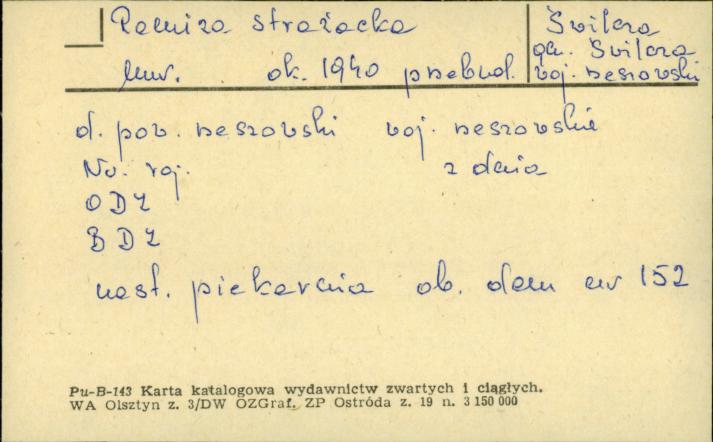 Remiza strażacka
Świlcza
gm. Świlcza
mur. ok. 1940 przebud.
woj. rzeszowski
d. pow. rzeszowski woj. rzeszowskie
Nr. rej. z dnia
ODZ
BDZ
nast. piekarnia ob. dom nr 152
Pu-B-143 Karta katalogowa wydawnictw zwartych i ciągłych.
WA Olsztyn z. 3/DW OZGraf. ZP Ostróda z. 19 n. 3 150 000